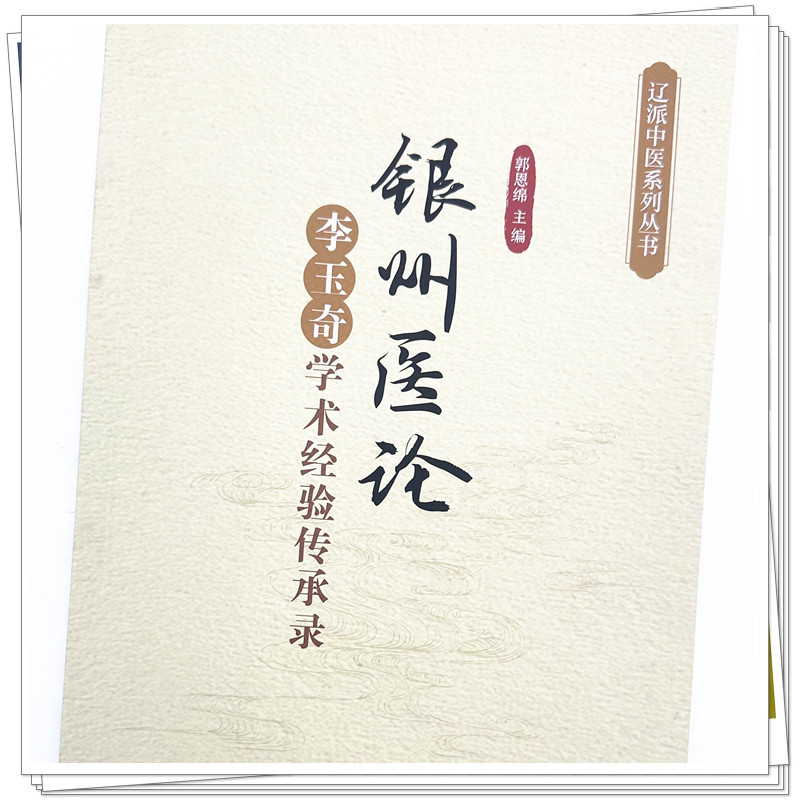 辽派中医系列丛书
郭恩绵 主编
银州医论
李玉奇学术经验传承录